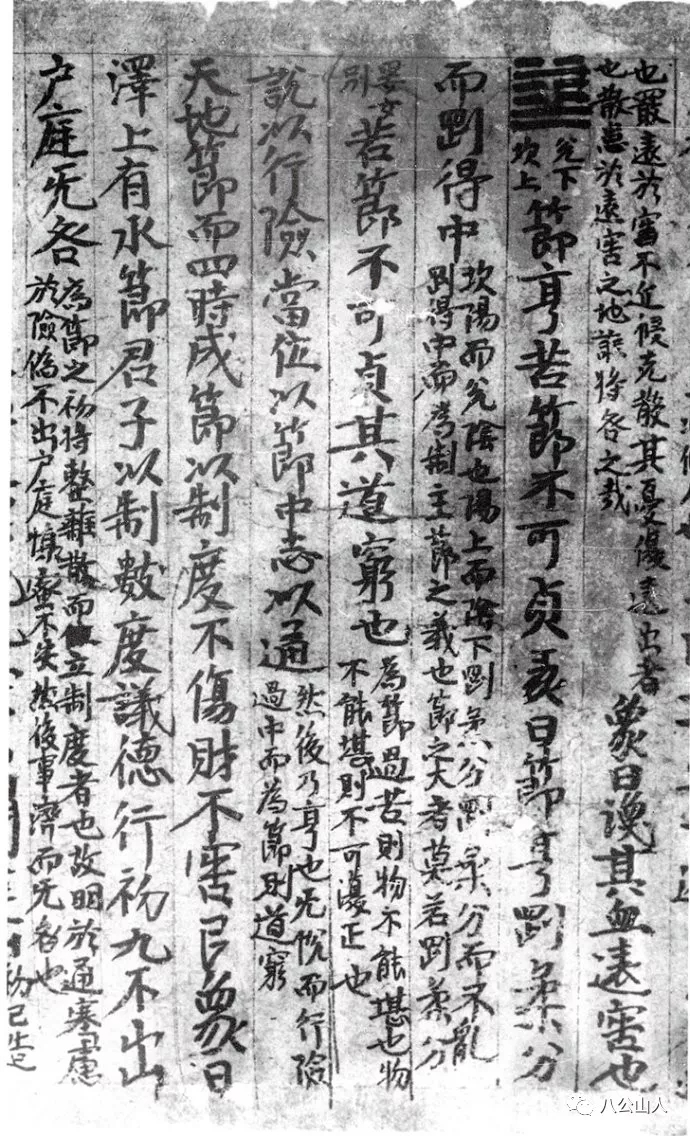 也㝡遠於害不近侵克散其憂傷遠出者
也散患於遠害之地誰將咎之哉
象曰渙其血遠害也
兌下
坎上
節亨苦節不可貞彖曰節亨剛柔分
而剛得中
坎陽而兌陰也陽上而陰下剛柔分剛柔分而不亂
剛得中而為制主節之義也節之大者莫若剛柔分
男女
別
苦節不可貞其道窮也
為節過苦則物不能堪也物
不能堪則不可復正也
說以行險當位以節中志以通
然後乃亨也无悅而行險
過中而為節則道窮
天地節而四時成節以制度不傷財不害己象曰
澤上有水節君子以制數度議德行初九不出
戶庭无咎
為節之初將整離散而立制度者也故明於通塞慮
於險偽不出戶庭慎密不失然後事濟而无咎也
八公山人